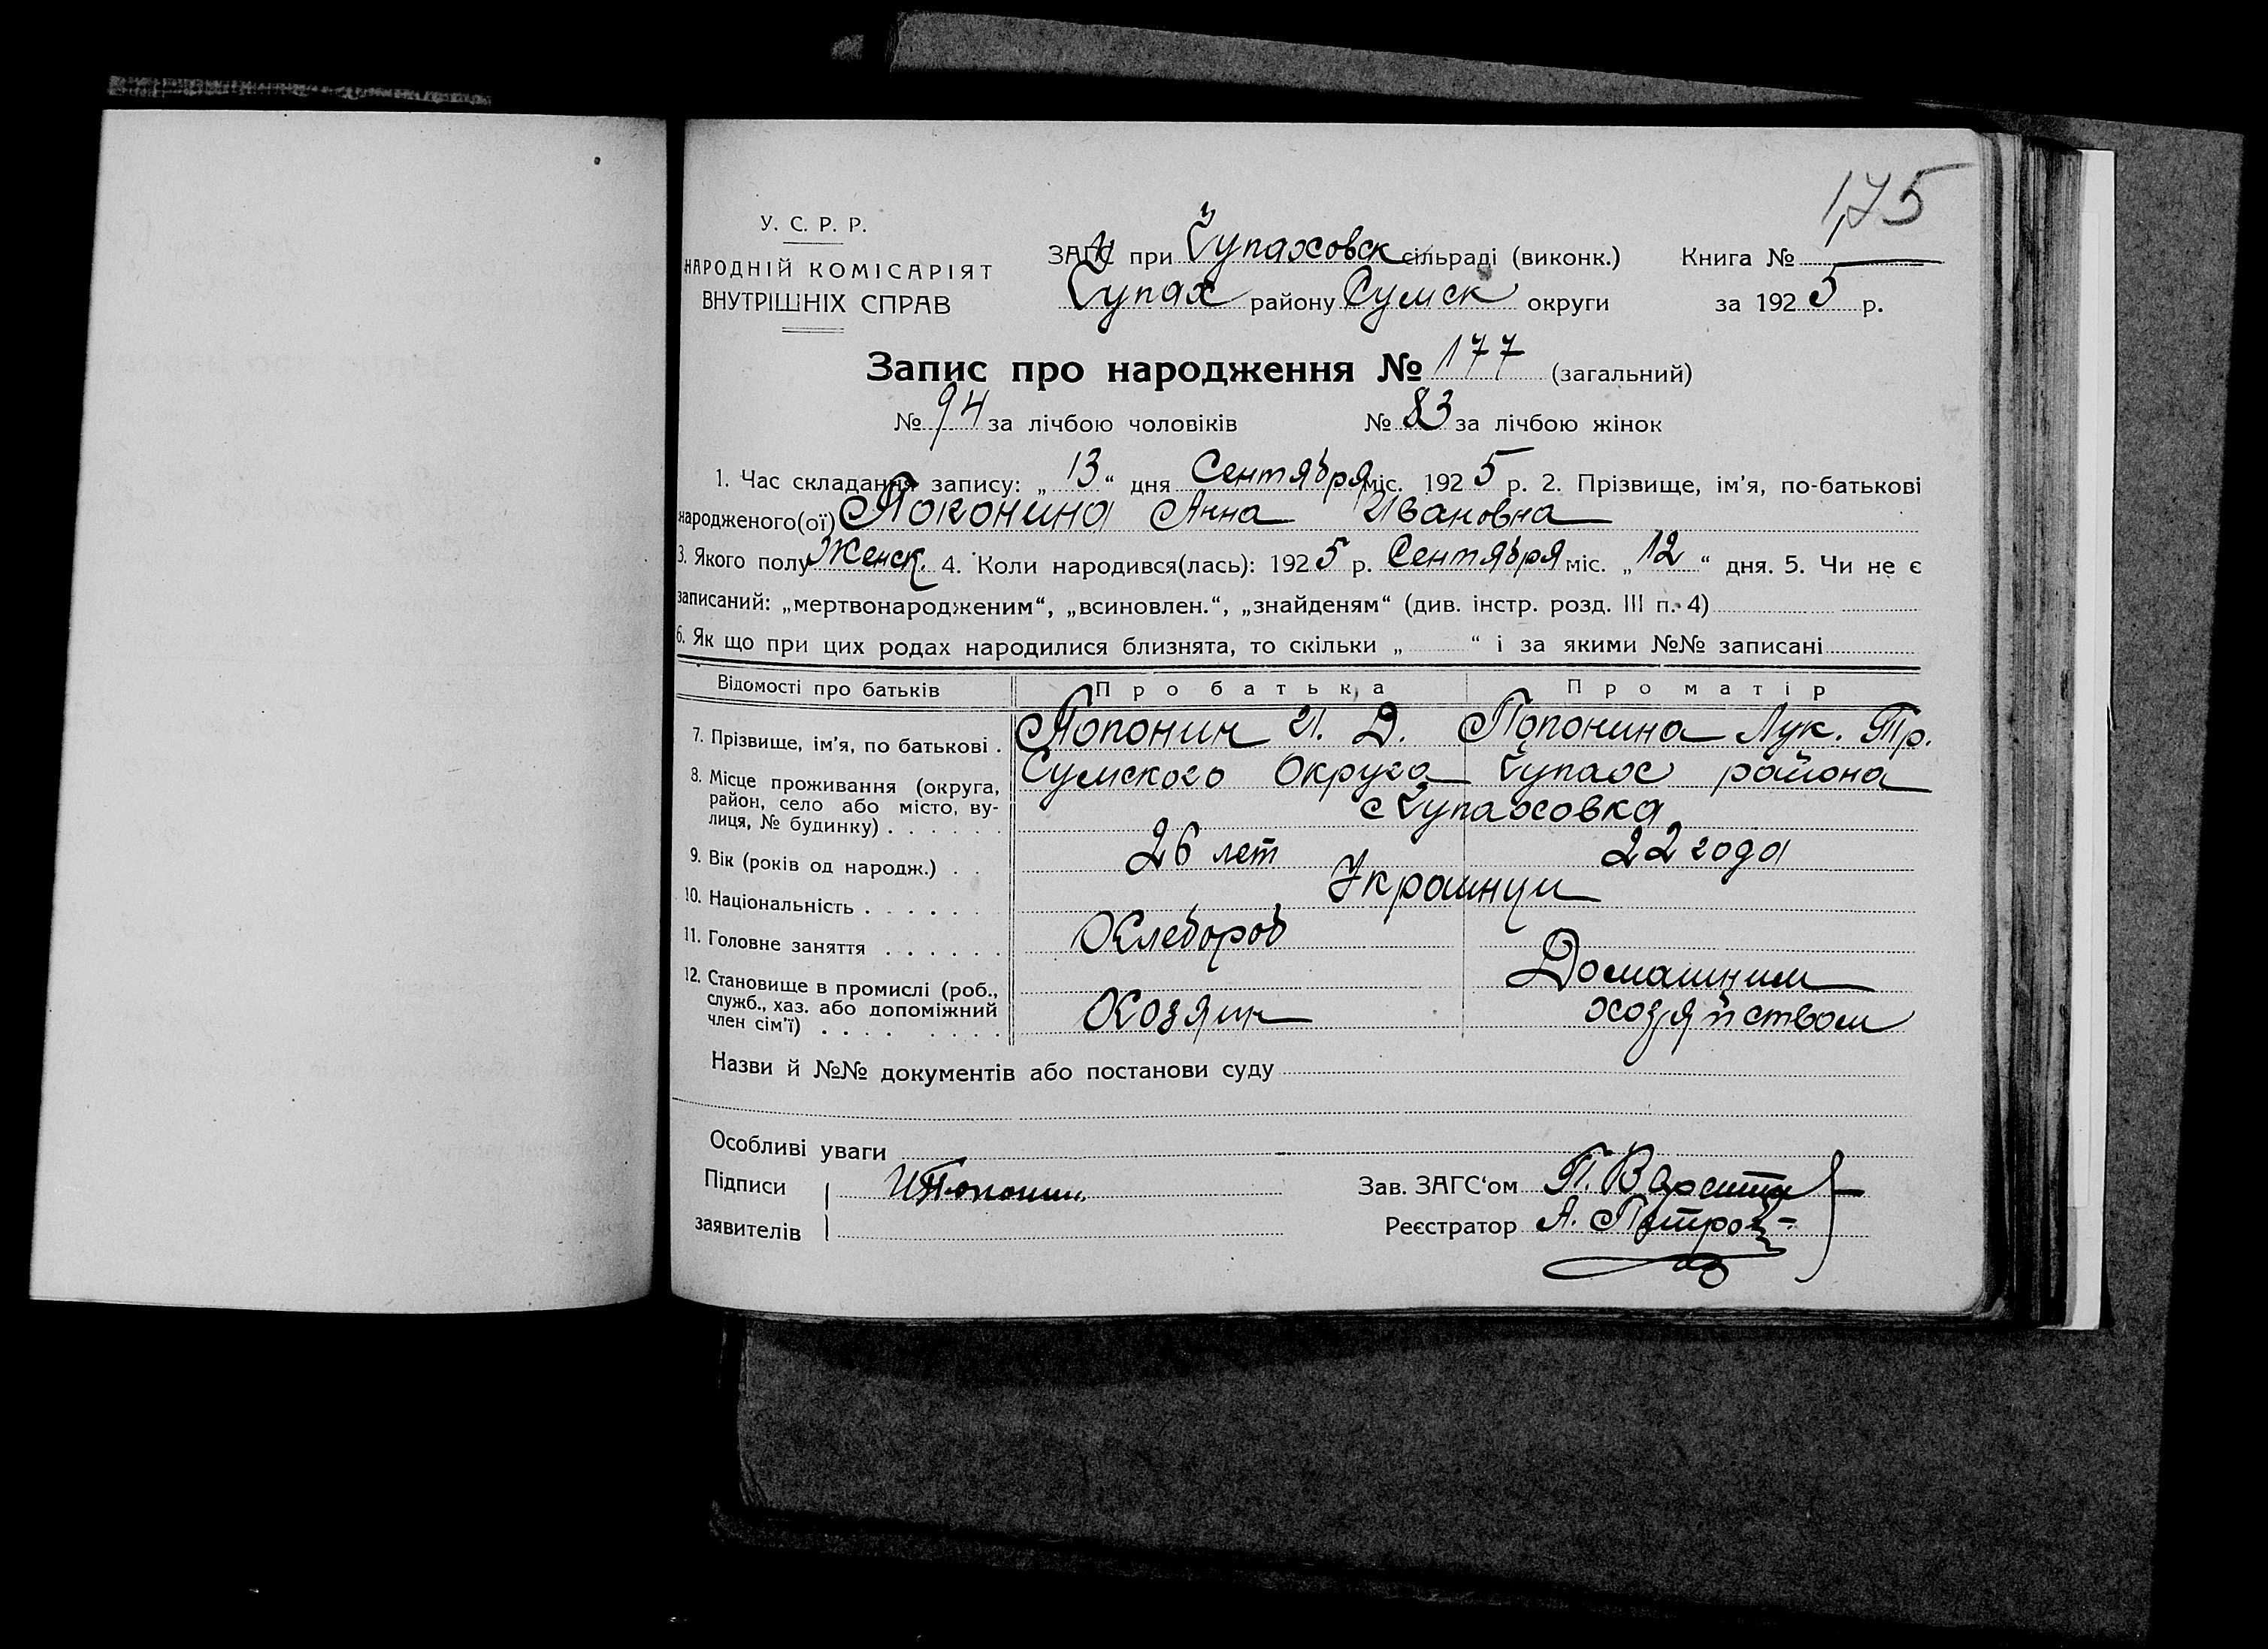 175
У. С. Р. Р.
НАРОДНІЙ КОМІСАРІЯТ
ВНУТРІШНІХ СПРАВ
ЗАГС при Чупаховск сільраді (виконк.)
Чупах району Сумск округи
Книга №
за 1925 р.
Запис про народження № 177 (загальний)
№ 94 за лічбою чоловіків № 83 за лічбою жінок
1. Час складання запису: „13“ дня Сентября міс. 1925 р. 2. Прізвище, ім'я, по-батькові
народженого(ої) Поконина Анна Ивановна
3. Якого полу Женск. 4. Коли народився(лась): 1925 р. Сентября міс. „12“ дня. 5. Чи не є
записаний: „мертвонародженим“, „всиновлен.“, „знайденям“ (див. інстр. розд. III п. 4)
6. Як що при цих родах народилися близнята, то скільки „ “ і за якими №№ записані
Відомості про батьків Про батька Про матір
7. Прізвище, ім'я, по батькові . Попонин И. Д. Попонина Лук. Тр.
8. Місце проживання (округа, район, село або місто, вулиця, № будинку) . . . . . . Сумского Округа Чупах района
с Чупаховка
9. Вік (років од народж.) . . 26 лет 22 года
10. Національність . . . . . . Украинци
11. Головне заняття . . . . . . Хлебороб
Домашним
12. Становище в промислі (роб., служб., хаз. або допоміжний член сім'ї) . . . . . . . . Хозяин хозяйством
Назви й №№ документів або постанови суду
Особливі уваги
Підписи
заявителів
И Попонин
Зав. ЗАГС‘ом П.
Реєстратор А. Петров